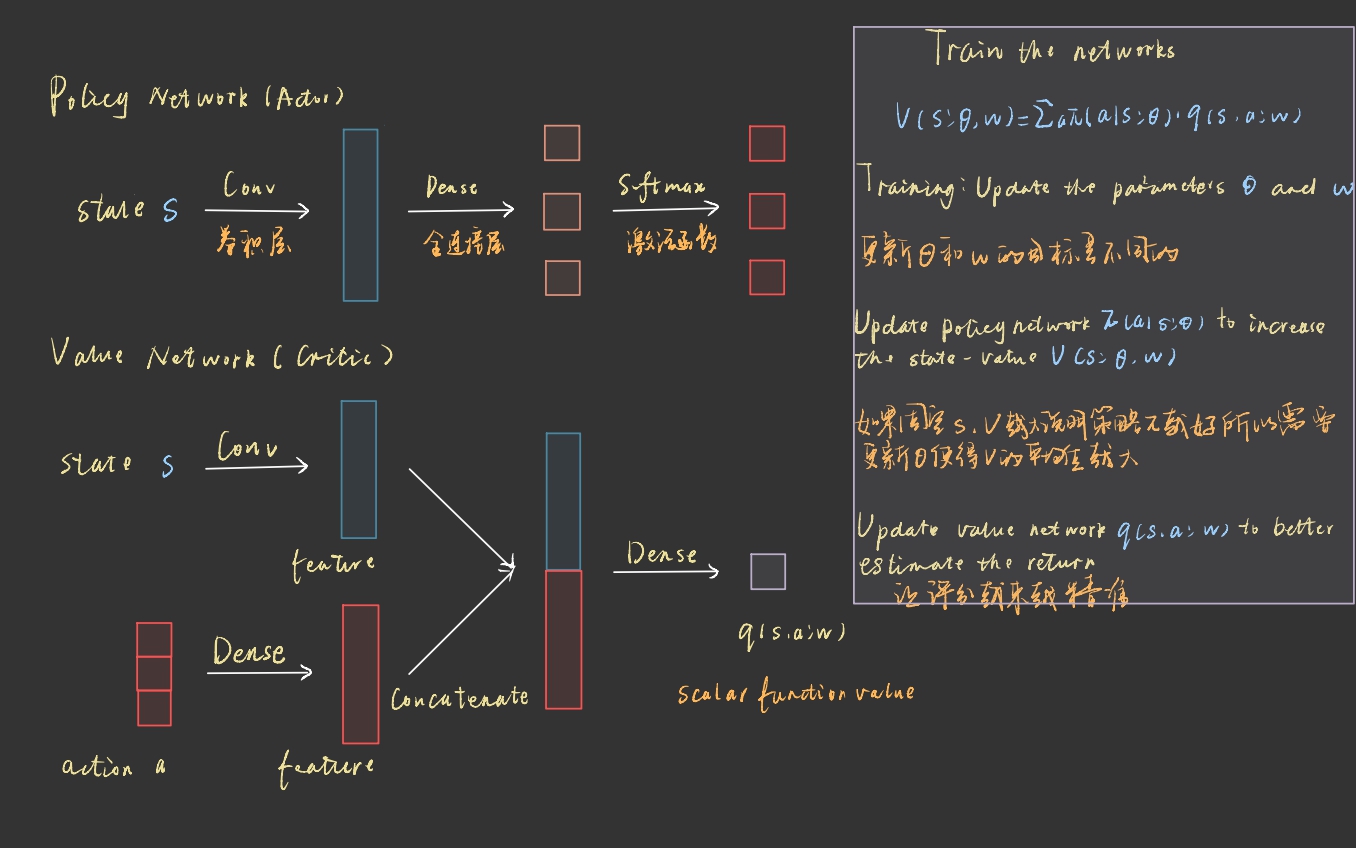 Policy Network (Actor)
state S
Conv
卷积层
Dense
全连接层
Softmax
激活函数
Value Network (Critic)
state S
Conv
feature
action a
Dense
feature
Concatenate
Dense
q(s.a;w)
scalar function value
Train the networks
V(s;θ,w)=∑aπ(a|s;θ)·q(s.a;w)
Training: Update the parameters θ and w
更新θ和w的目标是不同的
Update policy network π(a|s;θ) to increase
the state-value V(s;θ,w)
如果固定s.V越大说明策略π越好所以需要
更新θ使得V的平均值越大
Update value network q(s.a;w) to better
estimate the return
让评分越来越精准